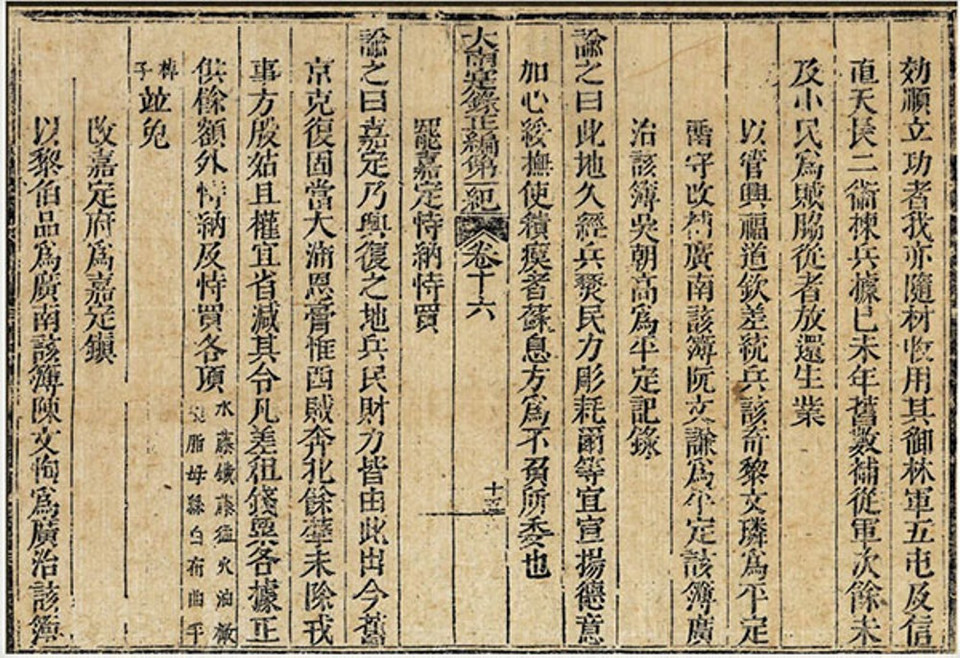 効順立功者我亦隨材收用其御林軍五屯及信
直天長二衛揀兵據己未年舊數補從軍次餘未
及小民爲賊脇從者放還生業
以管興福道欽差統兵該奇黎文璘爲平定
畱守改補廣南該簿阮文謙爲平定該簿廣
治該簿吳朝高爲平定記錄
諭之曰此地久經兵燹民力彫耗爾等宜宣揚德意
加心綏撫使積瘼者蘇息方爲不負所委也
大南寔錄正編第一紀 卷十六
罷嘉定恃納恃買
諭之曰嘉定乃興復之地兵民財力皆由此出今舊
京克復固當大沛恩膏惟西賊奔北餘孽未除戎
事方殷姑且權宜省減其令凡差租錢粟各據正
供餘額外恃納及恃買各項
水藤鐵藤猛火油橄
脂母緜白布曲平
子
並免
改嘉定府爲嘉定鎮
以黎伯品爲廣南該簿陳文恂爲廣治該簿